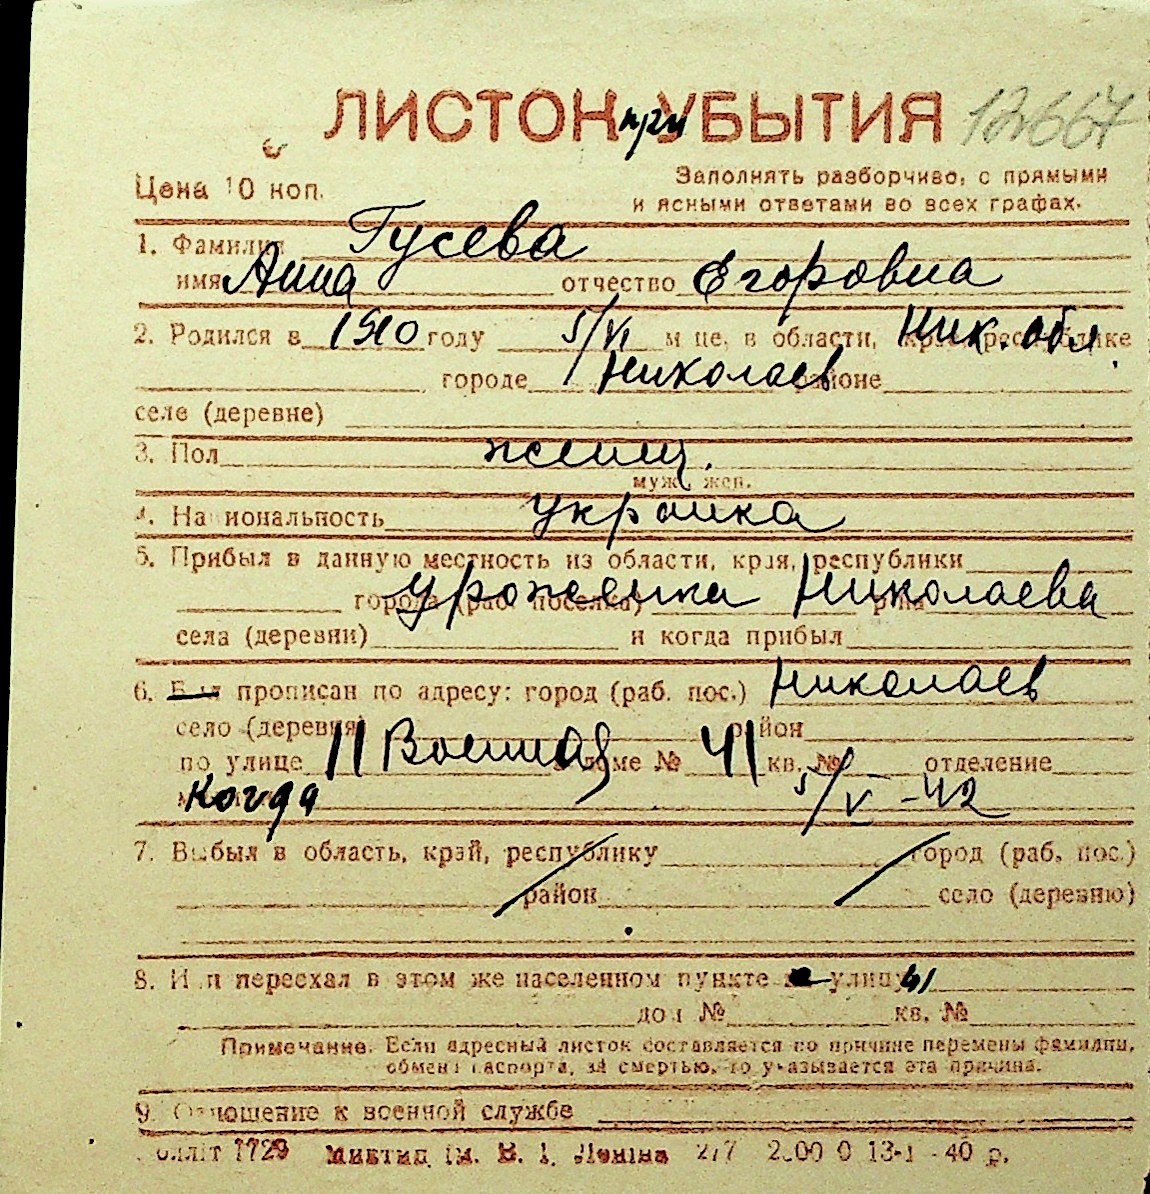 ЛИСТОК при УБЫТИЯ 12667
Цена 10 коп.
Заполнять разборчиво, с прямыми
и ясными ответами во всех графах.
1. Фамилия Гусева
имя Анна отчество Егоровна
2. Родился в 1910 году 5/VI м це, в области, крае, республике Ник. обл.
городе Николаев районе
селе (деревне)
3. Пол женщ.
муж. жен.
4. Национальность украинка
5. Прибыл в данную местность из области, края, республики
города (раб. поселка) уроженка Николаева р-на
села (деревни) и когда прибыл
6. Был прописан по адресу: город (раб. пос.) Николаев
село (деревня) район
по улице 11 Военная в доме № 41 кв. № отделение
Когда 5/V - 42
7. Выбыл в область, край, республику город (раб. пос.)
район село (деревню)
8. Или переехал в этом же населенном пункте на улицу
дом № кв. №
Примечание. Если адресный листок составляется по причине перемены фамилии,
обмена паспорта, за смертью, то указывается эта причина.
9. Отношение к военной службе
1729 им. В. І. Леніна 40 р.